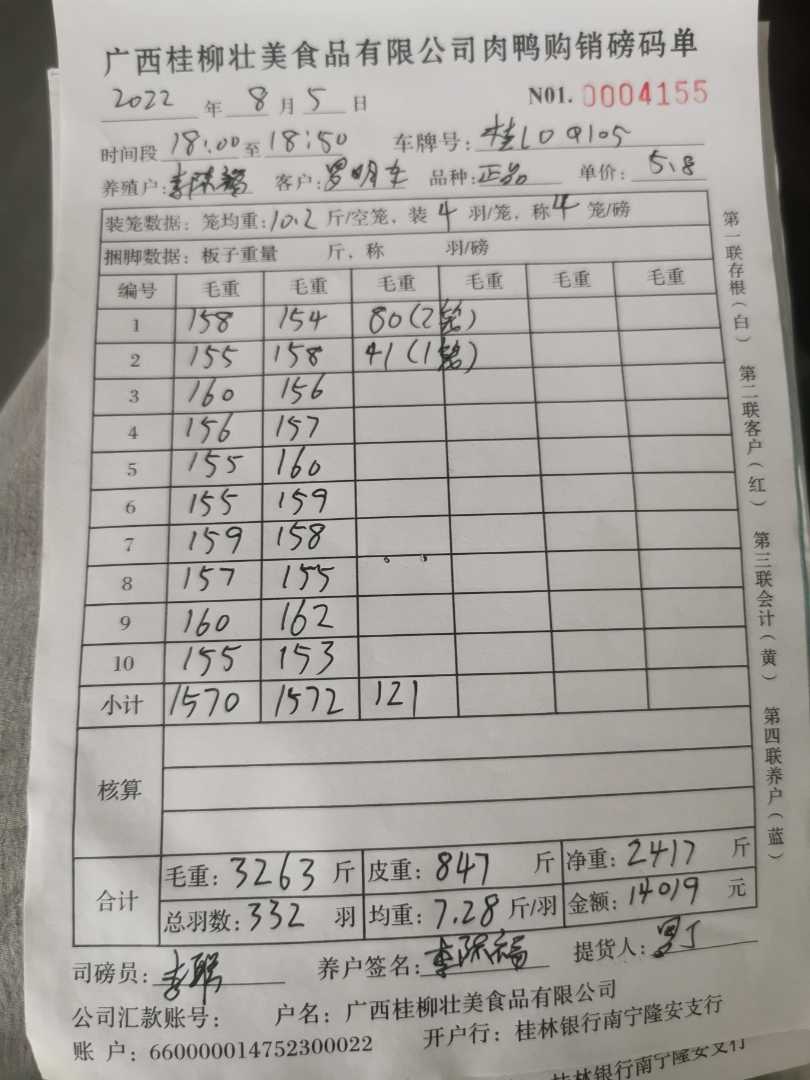 广西桂柳壮美食品有限公司肉鸭购销磅码单
2022 年 8 月 5 日 N01. 0004155
时间段 18:00 至 18:50 车牌号: 桂L09105
养殖户: 客户: 品种: 正品 单价: 5.8
装笼数据: 笼均重: 10.2 斤/空笼, 装 4 羽/笼, 称 4 笼/磅
捆脚数据: 板子重量 斤, 称 羽/磅
编号 毛重 毛重 毛重 毛重 毛重 毛重
1 158 154 80(2笼)
2 155 158 41(1笼)
3 160 156
4 156 157
5 155 160
6 155 159
7 159 158
8 157 155
9 160 162
10 155 153
小计 1570 1572 121
核算
合计
毛重: 3263 斤 皮重: 847 斤 净重: 2417 斤
总羽数: 332 羽 均重: 7.28 斤/羽 金额: 14019 元
司磅员: 养户签名: 提货人:
公司汇款账号: 户名: 广西桂柳壮美食品有限公司
账 户: 660000014752300022 开户行: 桂林银行南宁隆安支行
桂林银行南宁隆安支行
第一联存根(白) 第二联客户(红) 第三联会计(黄) 第四联养户(蓝)